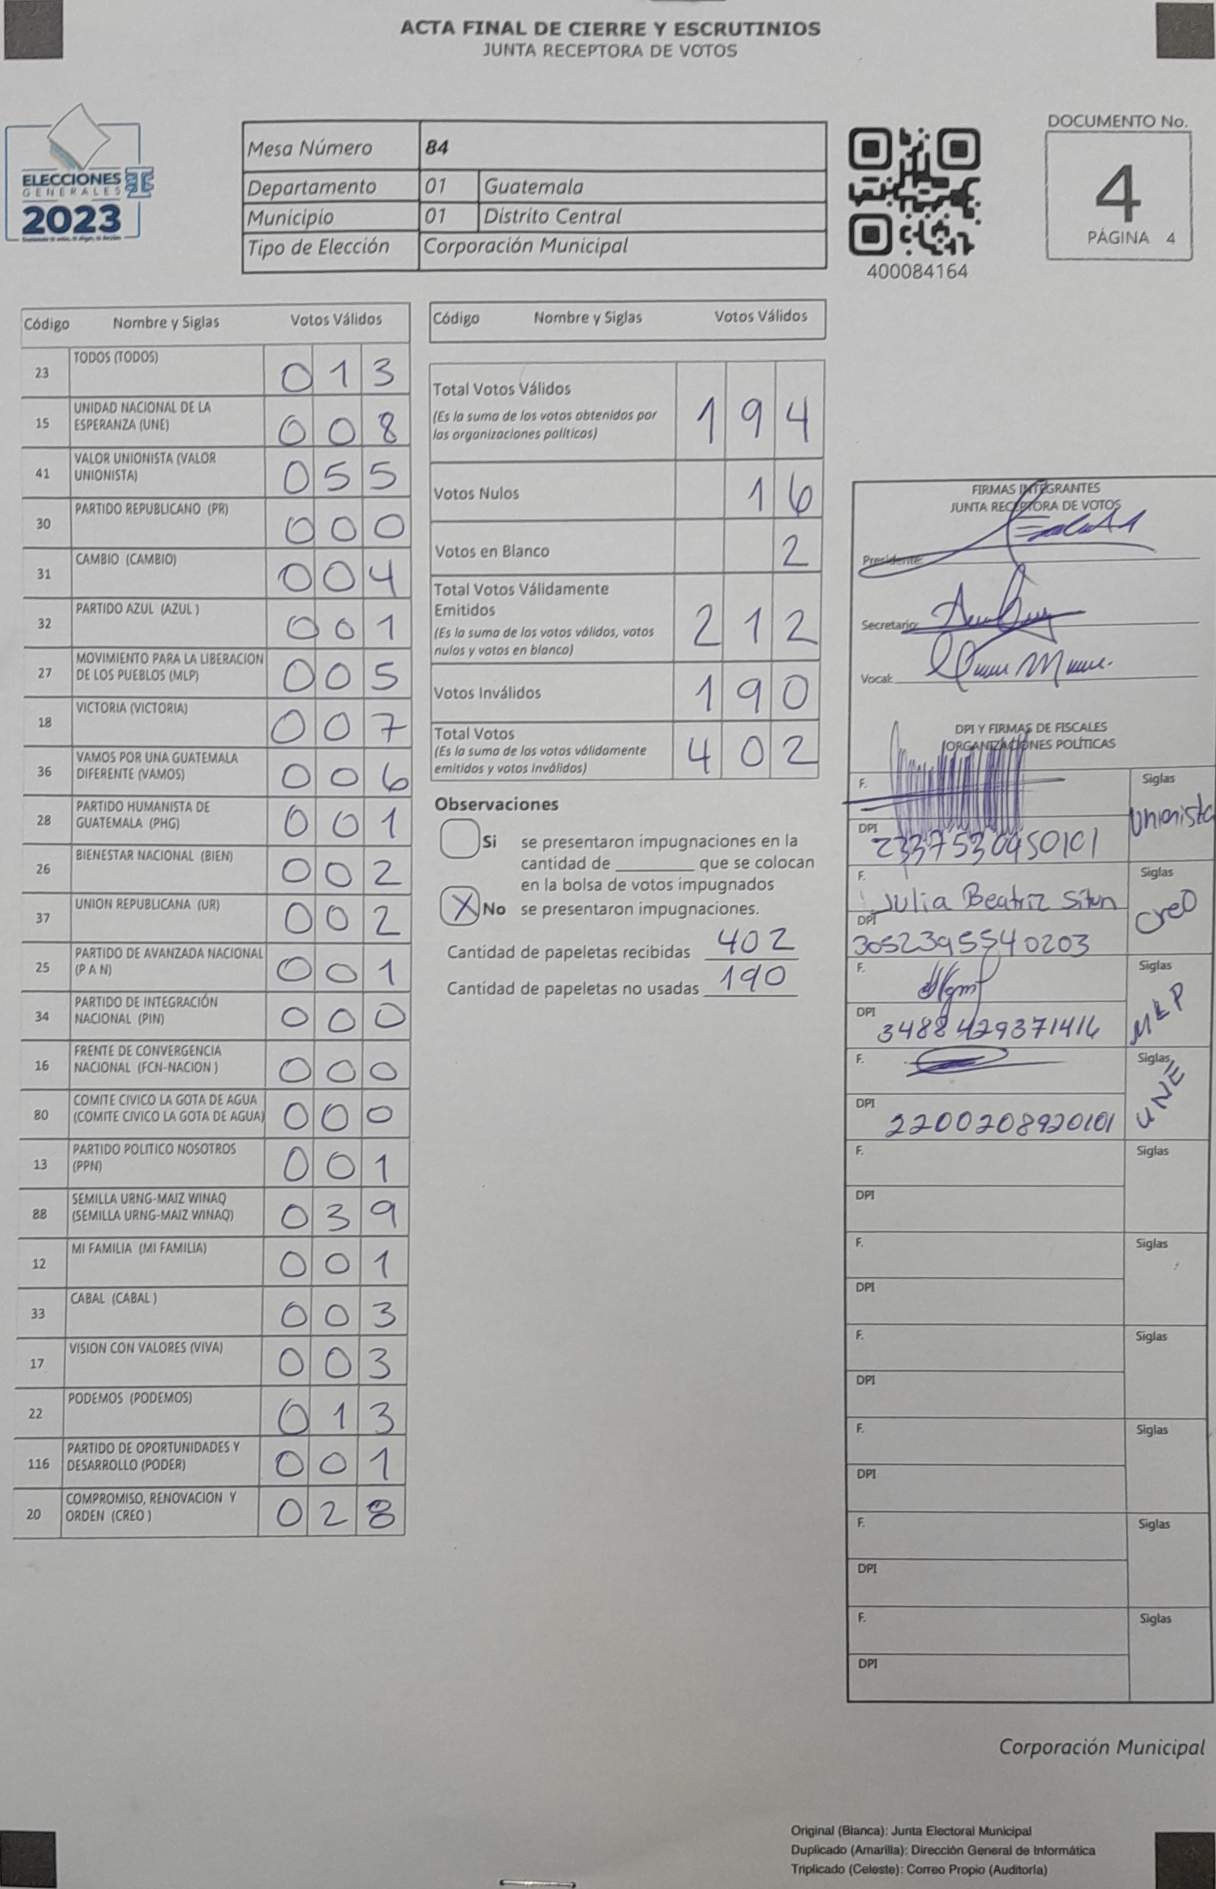 ACTA FINAL DE CIERRE Y ESCRUTINIOS
JUNTA RECEPTORA DE VOTOS
ELECCIONES
GENERALES
2023
Mesa Número 84
Departamento 01 Guatemala
Municipio 01 Distrito Central
Tipo de Elección Corporación Municipal
400084164
DOCUMENTO No.
4
PÁGINA 4
Código Nombre y Siglas Votos Válidos
23 TODOS (TODOS) 0 1 3
15 UNIDAD NACIONAL DE LA
ESPERANZA (UNE) 0 0 8
41 VALOR UNIONISTA (VALOR
UNIONISTA) 0 5 5
30 PARTIDO REPUBLICANO (PR) 0 0 0
31 CAMBIO (CAMBIO) 0 0 4
32 PARTIDO AZUL (AZUL ) 0 0 1
27 MOVIMIENTO PARA LA LIBERACION
DE LOS PUEBLOS (MLP) 0 0 5
18 VICTORIA (VICTORIA) 0 0 7
36 VAMOS POR UNA GUATEMALA
DIFERENTE (VAMOS) 0 0 6
28 PARTIDO HUMANISTA DE
GUATEMALA (PHG) 0 0 1
26 BIENESTAR NACIONAL (BIEN) 0 0 2
37 UNION REPUBLICANA (UR) 0 0 2
25 PARTIDO DE AVANZADA NACIONAL
(P A N) 0 0 1
34 PARTIDO DE INTEGRACIÓN
NACIONAL (PIN) 0 0 0
16 FRENTE DE CONVERGENCIA
NACIONAL (FCN-NACION ) 0 0 0
80 COMITE CIVICO LA GOTA DE AGUA
(COMITE CIVICO LA GOTA DE AGUA) 0 0 0
13 PARTIDO POLITICO NOSOTROS
(PPN) 0 0 1
88 SEMILLA URNG-MAIZ WINAQ
(SEMILLA URNG-MAIZ WINAQ) 0 3 9
12 MI FAMILIA (MI FAMILIA) 0 0 1
33 CABAL (CABAL ) 0 0 3
17 VISION CON VALORES (VIVA) 0 0 3
22 PODEMOS (PODEMOS) 0 1 3
116 PARTIDO DE OPORTUNIDADES Y
DESARROLLO (PODER) 0 0 1
20 COMPROMISO, RENOVACION Y
ORDEN (CREO ) 0 2 8
Código Nombre y Siglas Votos Válidos
Total Votos Válidos
(Es la suma de los votos obtenidos por
las organizaciones políticas) 1 9 4
Votos Nulos 1 6
Votos en Blanco 2
Total Votos Válidamente
Emitidos
(Es la suma de los votos válidos, votos
nulos y votos en blanco) 2 1 2
Votos Inválidos 1 9 0
Total Votos
(Es la suma de los votos válidamente
emitidos y votos inválidos) 4 0 2
Observaciones
Si se presentaron impugnaciones en la
cantidad de ________ que se colocan
en la bolsa de votos impugnados
X No se presentaron impugnaciones.
Cantidad de papeletas recibidas 402
Cantidad de papeletas no usadas 190
FIRMAS INTEGRANTES
JUNTA RECEPTORA DE VOTOS
Presidente:
Secretario:
Vocal:
DPI Y FIRMAS DE FISCALES
ORGANIZACIONES POLÍTICAS
F. Siglas
Unionista
DPI 2337530450101
F. Julia Beatriz Siglas
Creo
DPI 3052395540203
F. Siglas
MLP
DPI 3488429371416
F. Siglas
UNE
DPI 2200208920101
F. Siglas
DPI
F. Siglas
DPI
F. Siglas
DPI
F. Siglas
DPI
F. Siglas
DPI
F. Siglas
DPI
Corporación Municipal
Original (Blanca): Junta Electoral Municipal
Duplicado (Amarilla): Dirección General de Informática
Triplicado (Celeste): Correo Propio (Auditoría)